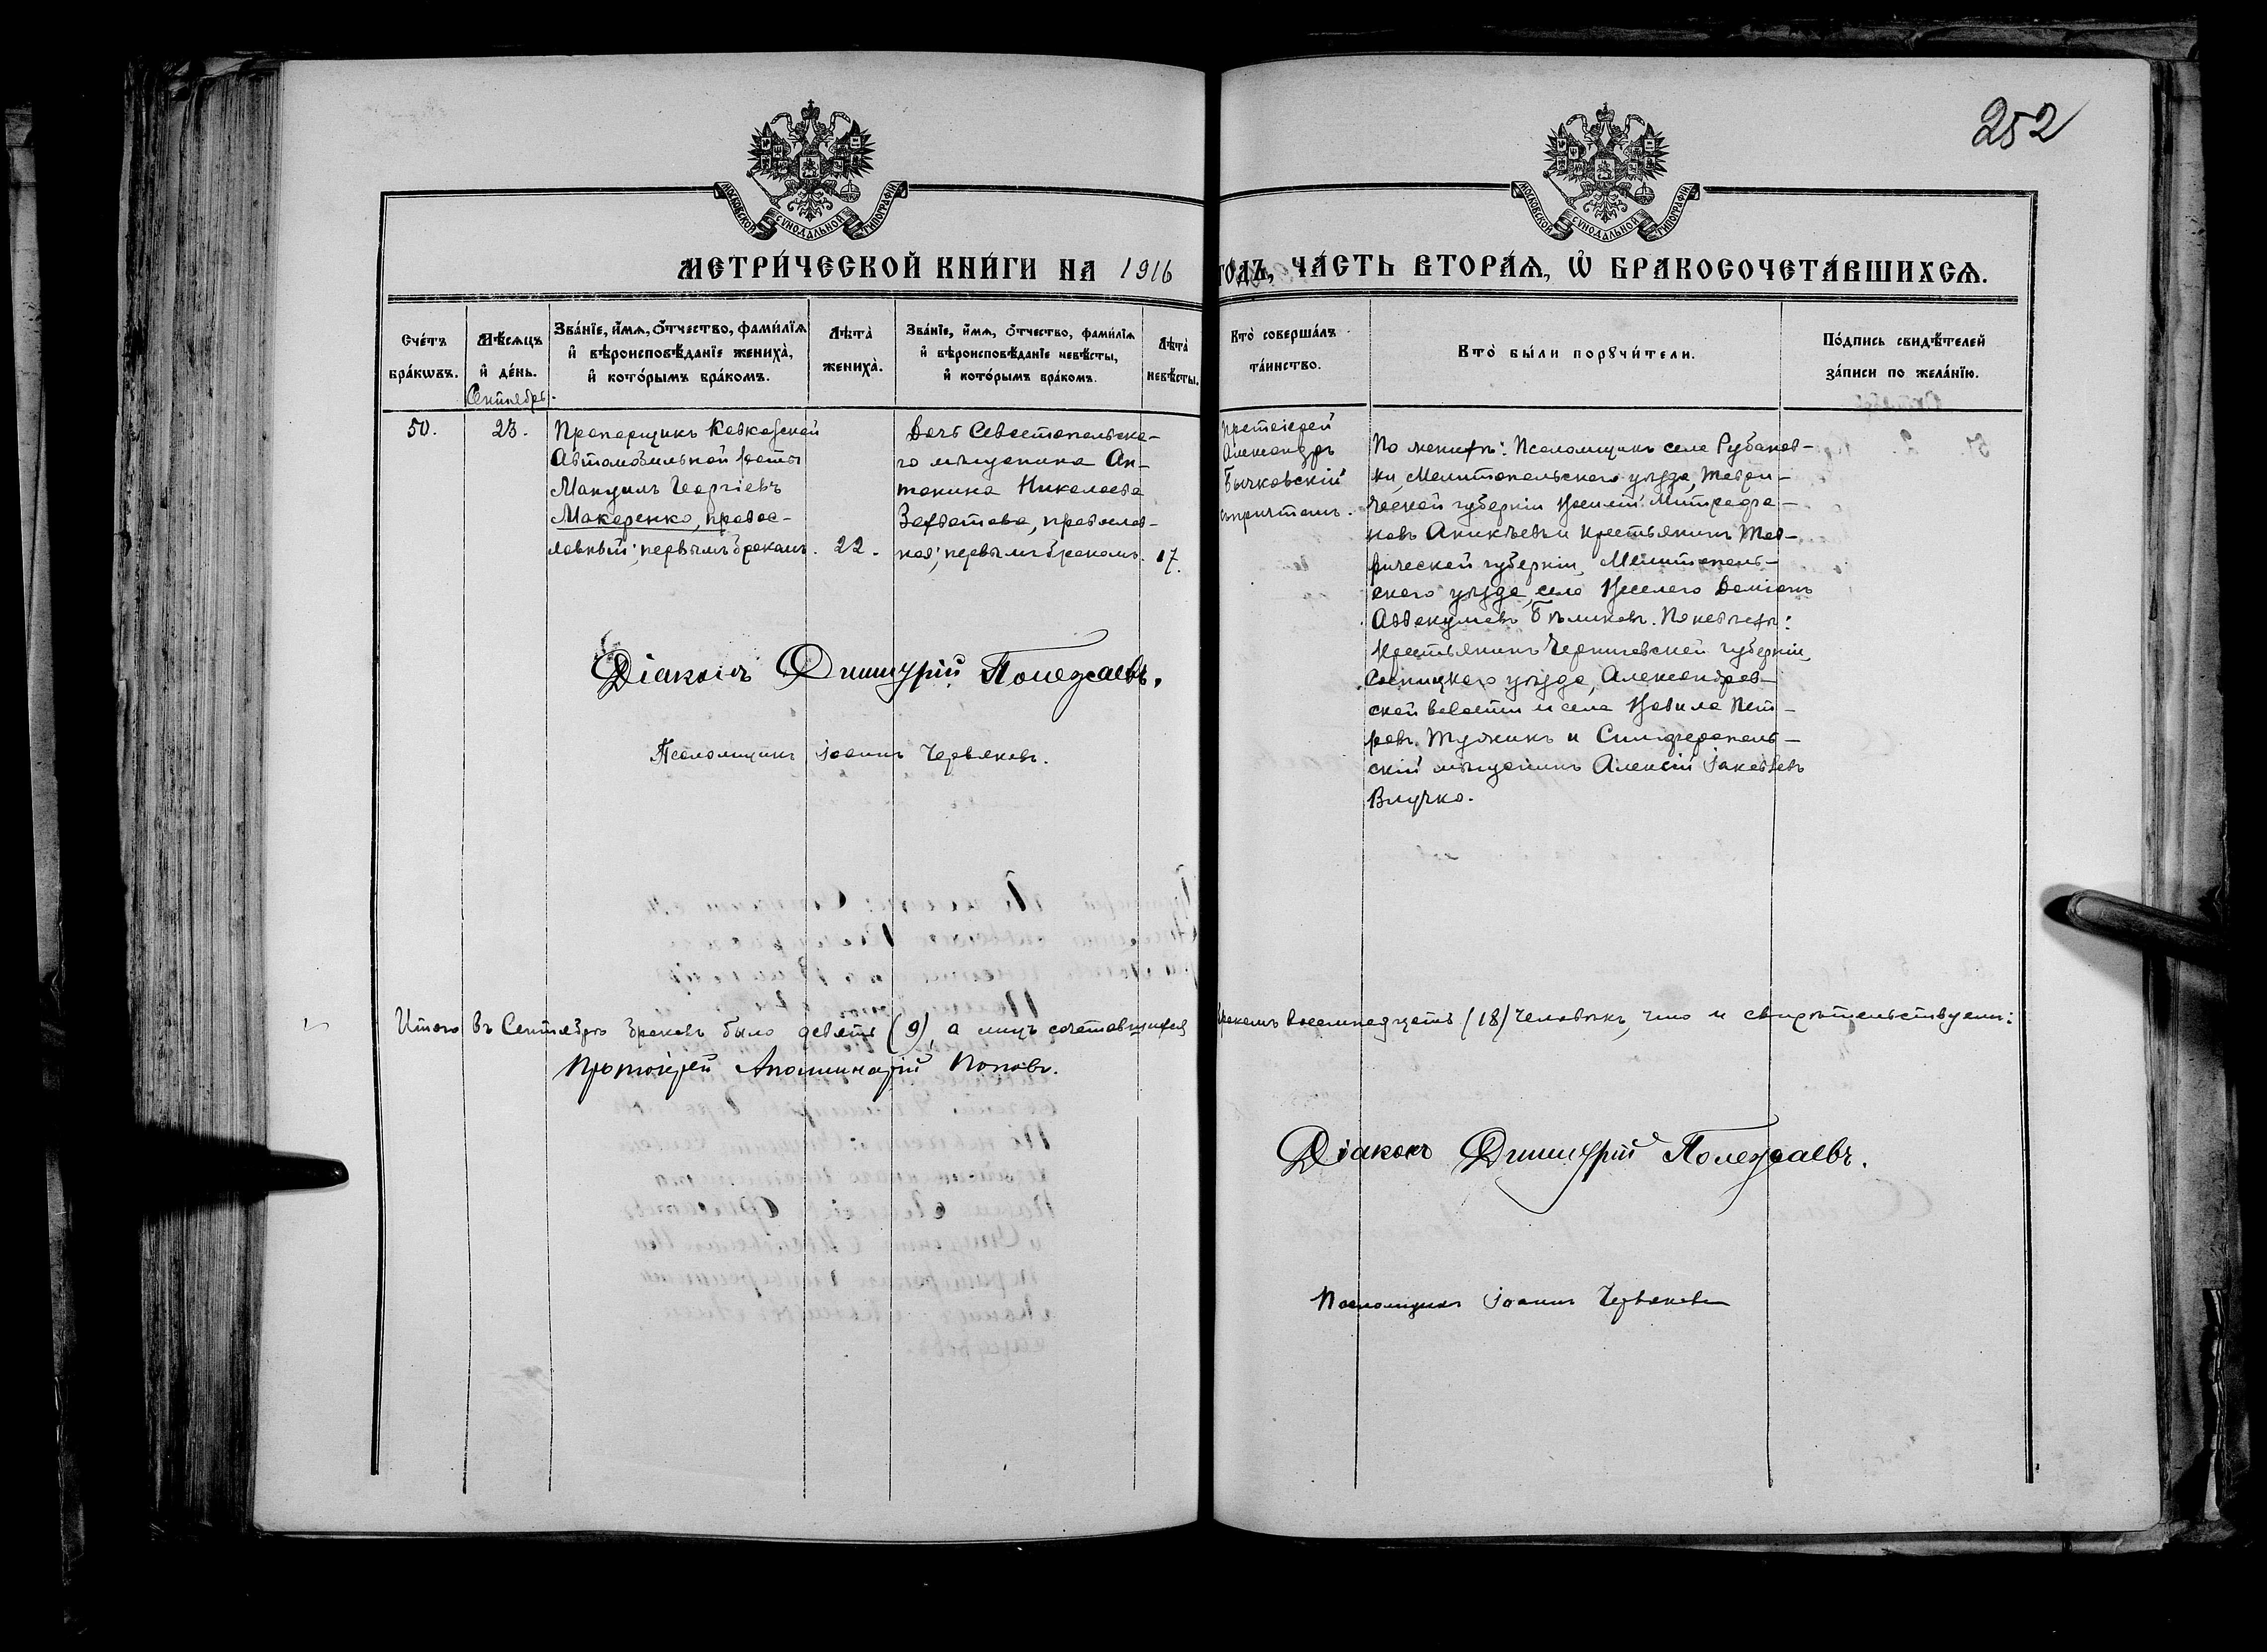 252
МОСКОВСКОЙ СѴНОДАЛЬНОЙ ТИПОГРАФІИ
МОСКОВСКОЙ СѴНОДАЛЬНОЙ ТИПОГРАФІИ
МЕТРИ́ЧЕСКОЙ КНИ́ГИ НА 1916
ГО́ДЪ, ЧА́СТЬ ВТОРА́Ѧ, Ѽ БРАКОСОЧЕТА́ВШИХСѦ.
Сче́тъ
бра́кѡвъ.
Мѣ́сѧцъ
и҆ де́нь.
Сентябрь.
Зва́нїе, и҆́мѧ, ѻ҆́тчество, фами́лїѧ
и҆ вѣроисповѣ́данїе жениха̀,
и҆ кото́рымъ бра́комъ.
Лѣ́та
жениха̀.
Зва́нїе, и҆́мѧ, ѻ҆́тчество, фами́лїѧ
и҆ вѣроисповѣ́данїе невѣ́сты,
и҆ кото́рымъ бра́комъ.
Лѣ́та
невѣ́сты.
Кто̀ соверша́лъ
та́инство.
Кто̀ бы́ли порꙋчи́тели.
По́дпись свидѣ́телей
за́писи по жела́нїю.
50.
23.
Прапорщикъ Кавказской
Автомобильной роты
Мануилъ Георгіевъ
Макаренко, правос-
лавный; первымъ бракомъ.
22.
Дочь Севастопольска-
го мѣщанина Ан-
тонина Николаева
Захватова, православ-
ная; первымъ бракомъ.
17.
Протоіерей
Александръ
Бычковскій
съ причтомъ.
По женихѣ: Псаломщикъ села Рубанов-
ки, Мелитопольскаго уѣзда, Таври-
ческой губерніи Митрофа-
новъ Аникѣевъ и крестьянинъ Тав-
рической губерніи, Мелитополь-
скаго уѣзда, села Даміанъ
Аввакумовъ Бѣликовъ. По невѣстѣ:
Крестьянинъ Черниговской губерніи,
Сосницкаго уѣзда, Александров-
ской волости и села Пет-
ровъ и Симферополь-
скій мѣщанинъ Алексій Іаковлевъ
Влучко.
Діаконъ Димитрій Полежаевъ.
Псаломщикъ Іоаннъ Червяковъ.
Итого въ Сентябрѣ браковъ было девять (9), а лицъ сочетавшихся
бракомъ восемнадцать (18) человѣкъ, что и свидѣтельствуемъ:
Протоіерей Аполлинарій Поповъ.
Діаконъ Димитрій Полежаевъ.
Псаломщикъ Іоаннъ Червяковъ